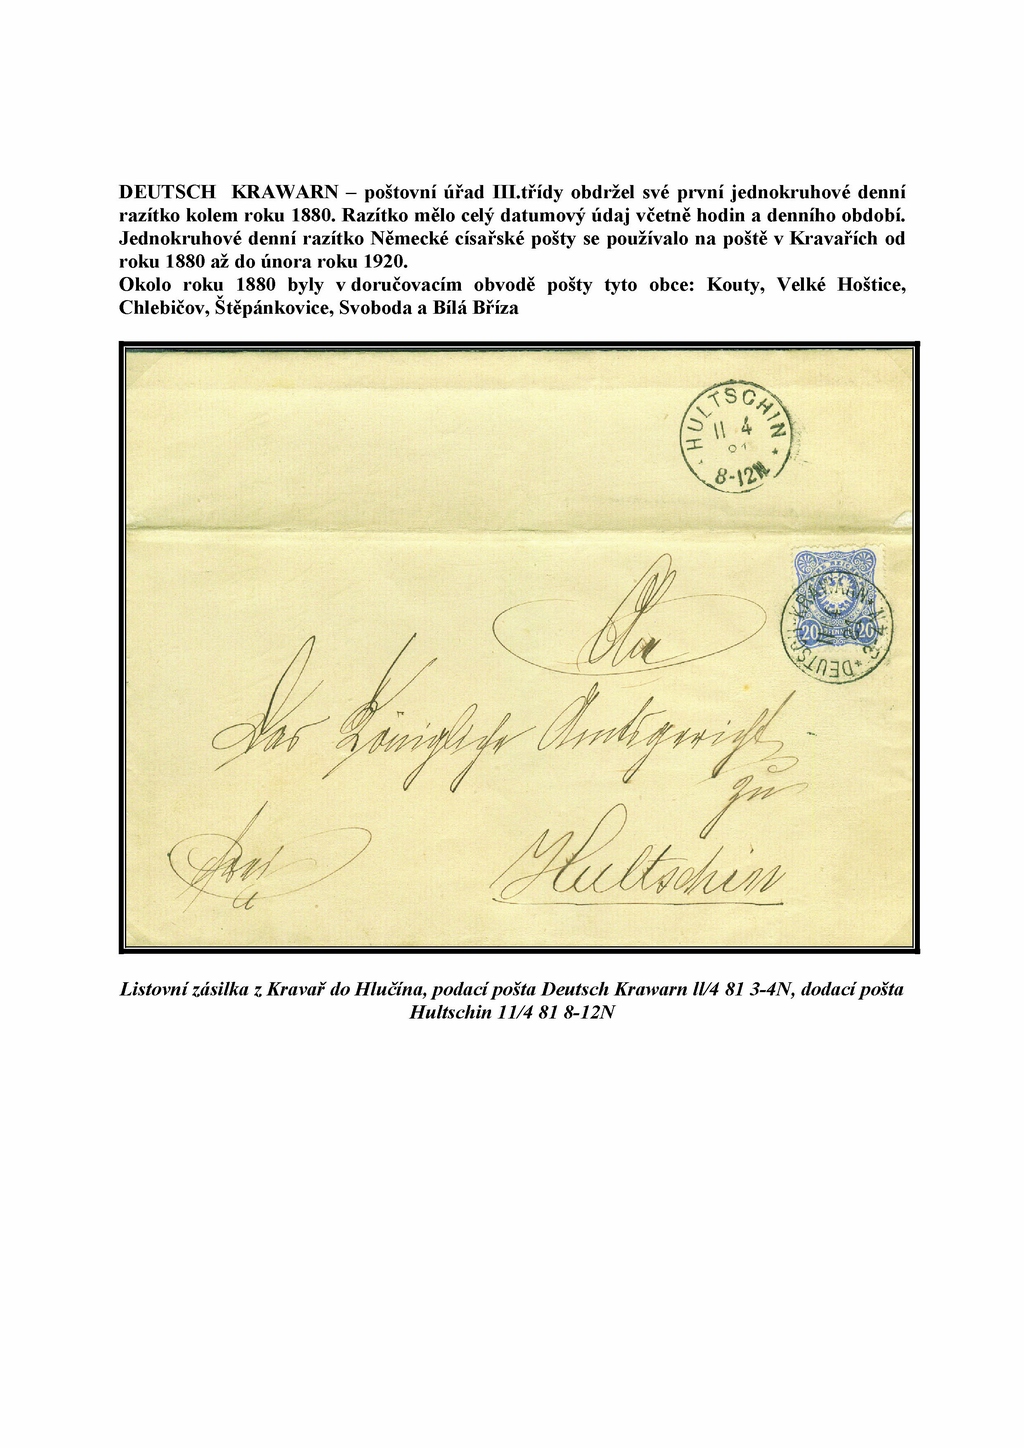 DEUTSCH KRAWARN – poštovní úřad III.třídy obdržel své první jednokruhové denní
razítko kolem roku 1880. Razítko mělo celý datumový údaj včetně hodin a denního období.
Jednokruhové denní razítko Německé císařské pošty se používalo na poště v Kravařích od
roku 1880 až do února roku 1920.
Okolo roku 1880 byly v doručovacím obvodě pošty tyto obce: Kouty, Velké Hoštice,
Chlebičov, Štěpánkovice, Svoboda a Bílá Bříza
HULTSCHIN
11 4
8-12N
20 20
DEUTSCH KRAWARN
3-4N
An
Das Königliche Amtsgericht
zu
Hultschin
Listovní zásilka z Kravař do Hlučína, podací pošta Deutsch Krawarn ll/4 81 3-4N, dodací pošta
Hultschin 11/4 81 8-12N